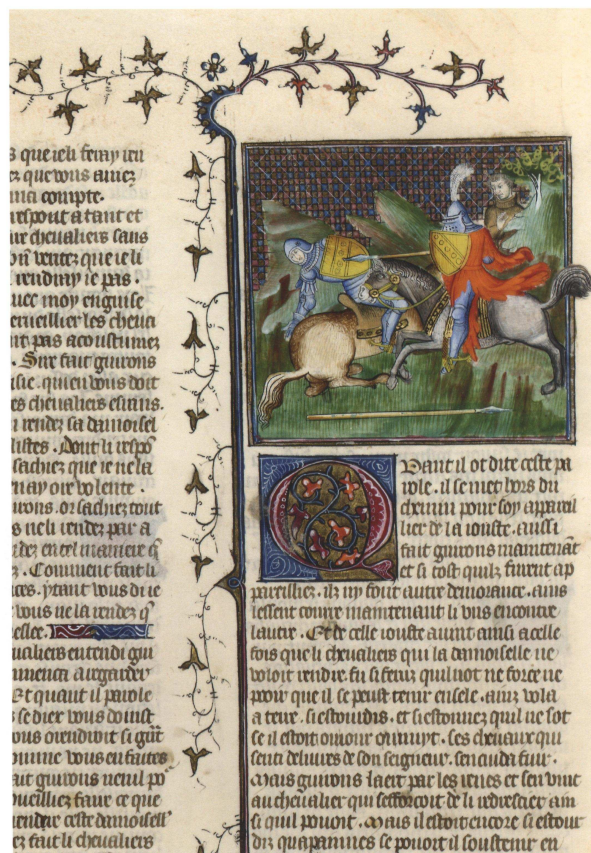 s que ie li feray ien
ez que vous auiez
compte.
respont atant et
ire cheualiers sans
ie li
rendray ie pas.
auec moy en guise
merueillier les cheua
nt pas acoustumez
. Sire fait guirons
sie. qui en vous doit
es cheualiers estrans.
n rendez sa damoisel
listes. Dont li respō
sachiez que ie ne la
uray oir volente.
irons. or sachiez tout
s ne li rendez par a
rdez en tel maniere q̄
z. Comment fait li
ces. ytant vous di ie
vous ne la rendez q̄
eslee.
eualiers entendi gui
mmenca a regarder
Et quant il parole
s se diex vous doinst
ous orendroit si grāt
omme vous en faites
ait guirons nenil po
ueilliez faire ce que
rendre ceste damoisell
ez fait li cheualiers
Quant il ot dite ceste pa
role. il se met hors du
chemin pour soy appareil
lier de la iouste. aussi
fait guirons maintenāt
et si tost quilz furent ap
pareilliez. ilz ny font autre demorance. ains
lessent courre maintenant li vns encontre
lautre. Et de celle iouste auint ainsi a celle
fois que li cheualiers qui la damoiselle ne
voloit rendre. fu si feruz quil not ne force ne
pooir que il se peust tenir en sele. ainz vola
a terre. si estordis. et si estonnez quil ne sot
se il estoit ou iour ou nuyt. ses cheuaux qui
senti deliures de son seigneur. sen cuida fuir.
Mais guirons laert par les renes et sen vint
au cheualier qui sefforcoit de li redrescier ain
si quil pouoit. Mais il estoit encore si estour
diz qua paines se pouoit il soustenir en